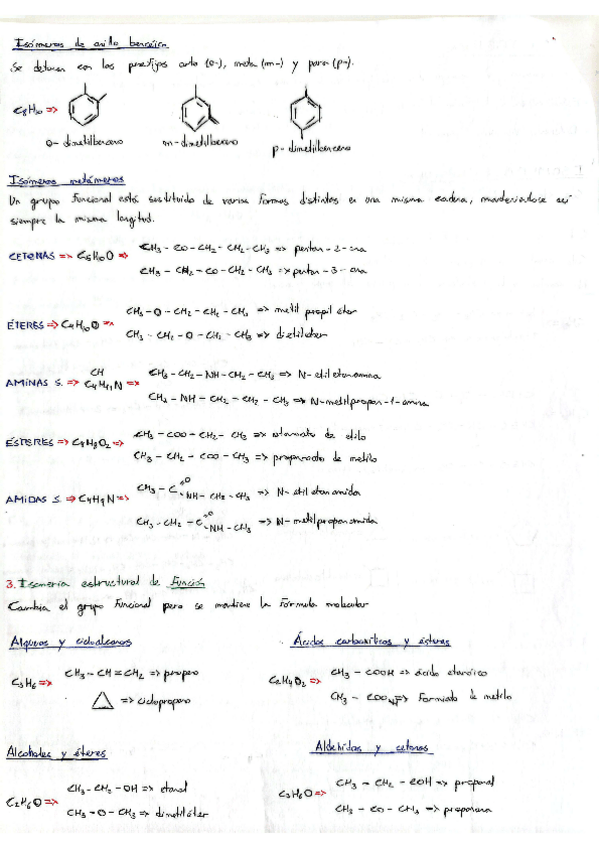 Isómeros de anillo bencénico
Se detonan con los prefijos orto (o-), meta (m-) y para (p-).
C8H10 =>
o- dimetilbenceno
m- dimetilbenceno
p- dimetilbenceno
Isómeros metámeros
Un grupo funcional está sustituido de varias formas distintas en una misma cadena, manteniéndose así
siempre la misma longitud.
CETONAS => C5H10O =>
CH3 - CO - CH2 - CH2 - CH3 => pentan - 2 - ona
CH3 - CH2 - CO - CH2 - CH3 => pentan - 3 - ona
ÉTERES => C4H10O =>
CH3 - O - CH2 - CH2 - CH3 => metil propil éter
CH3 - CH2 - O - CH2 - CH3 => dietiléter
CH
AMINAS S. => C4H11N =>
CH3 - CH2 - NH - CH2 - CH3 => N- etiletanamina
CH3 - NH - CH2 - CH2 - CH3 => N-metilpropan-1-amina
ÉSTERES => C4H8O2 =>
CH3 - COO - CH2 - CH3 => etanoato de etilo
CH3 - CH2 - COO - CH3 => propanoato de metilo
AMIDAS S. => C4H9N =>
CH3 - C O NH - CH2 - CH3 => N- etiletanamida
CH3 - CH2 - C O NH - CH3 => N- metilpropanamida
3. Isomería estructural de Función
Cambia el grupo funcional pero se mantiene la fórmula molecular
Alquenos y cicloalcanos
Ácidos carboxílicos y ésteres
C3H6 =>
CH3 - CH = CH2 => propeno
=> ciclopropano
C2H4O2 =>
CH3 - COOH => ácido etanoico
CH3 - COO => Formiato de metilo
Alcoholes y éteres
Aldehidos y cetonas
C2H6O =>
CH3 - CH2 - OH => etanol
CH3 - O - CH3 => dimetiléter
C3H6O =>
CH3 - CH2 - COH => propanal
CH3 - CO - CH3 => propanona